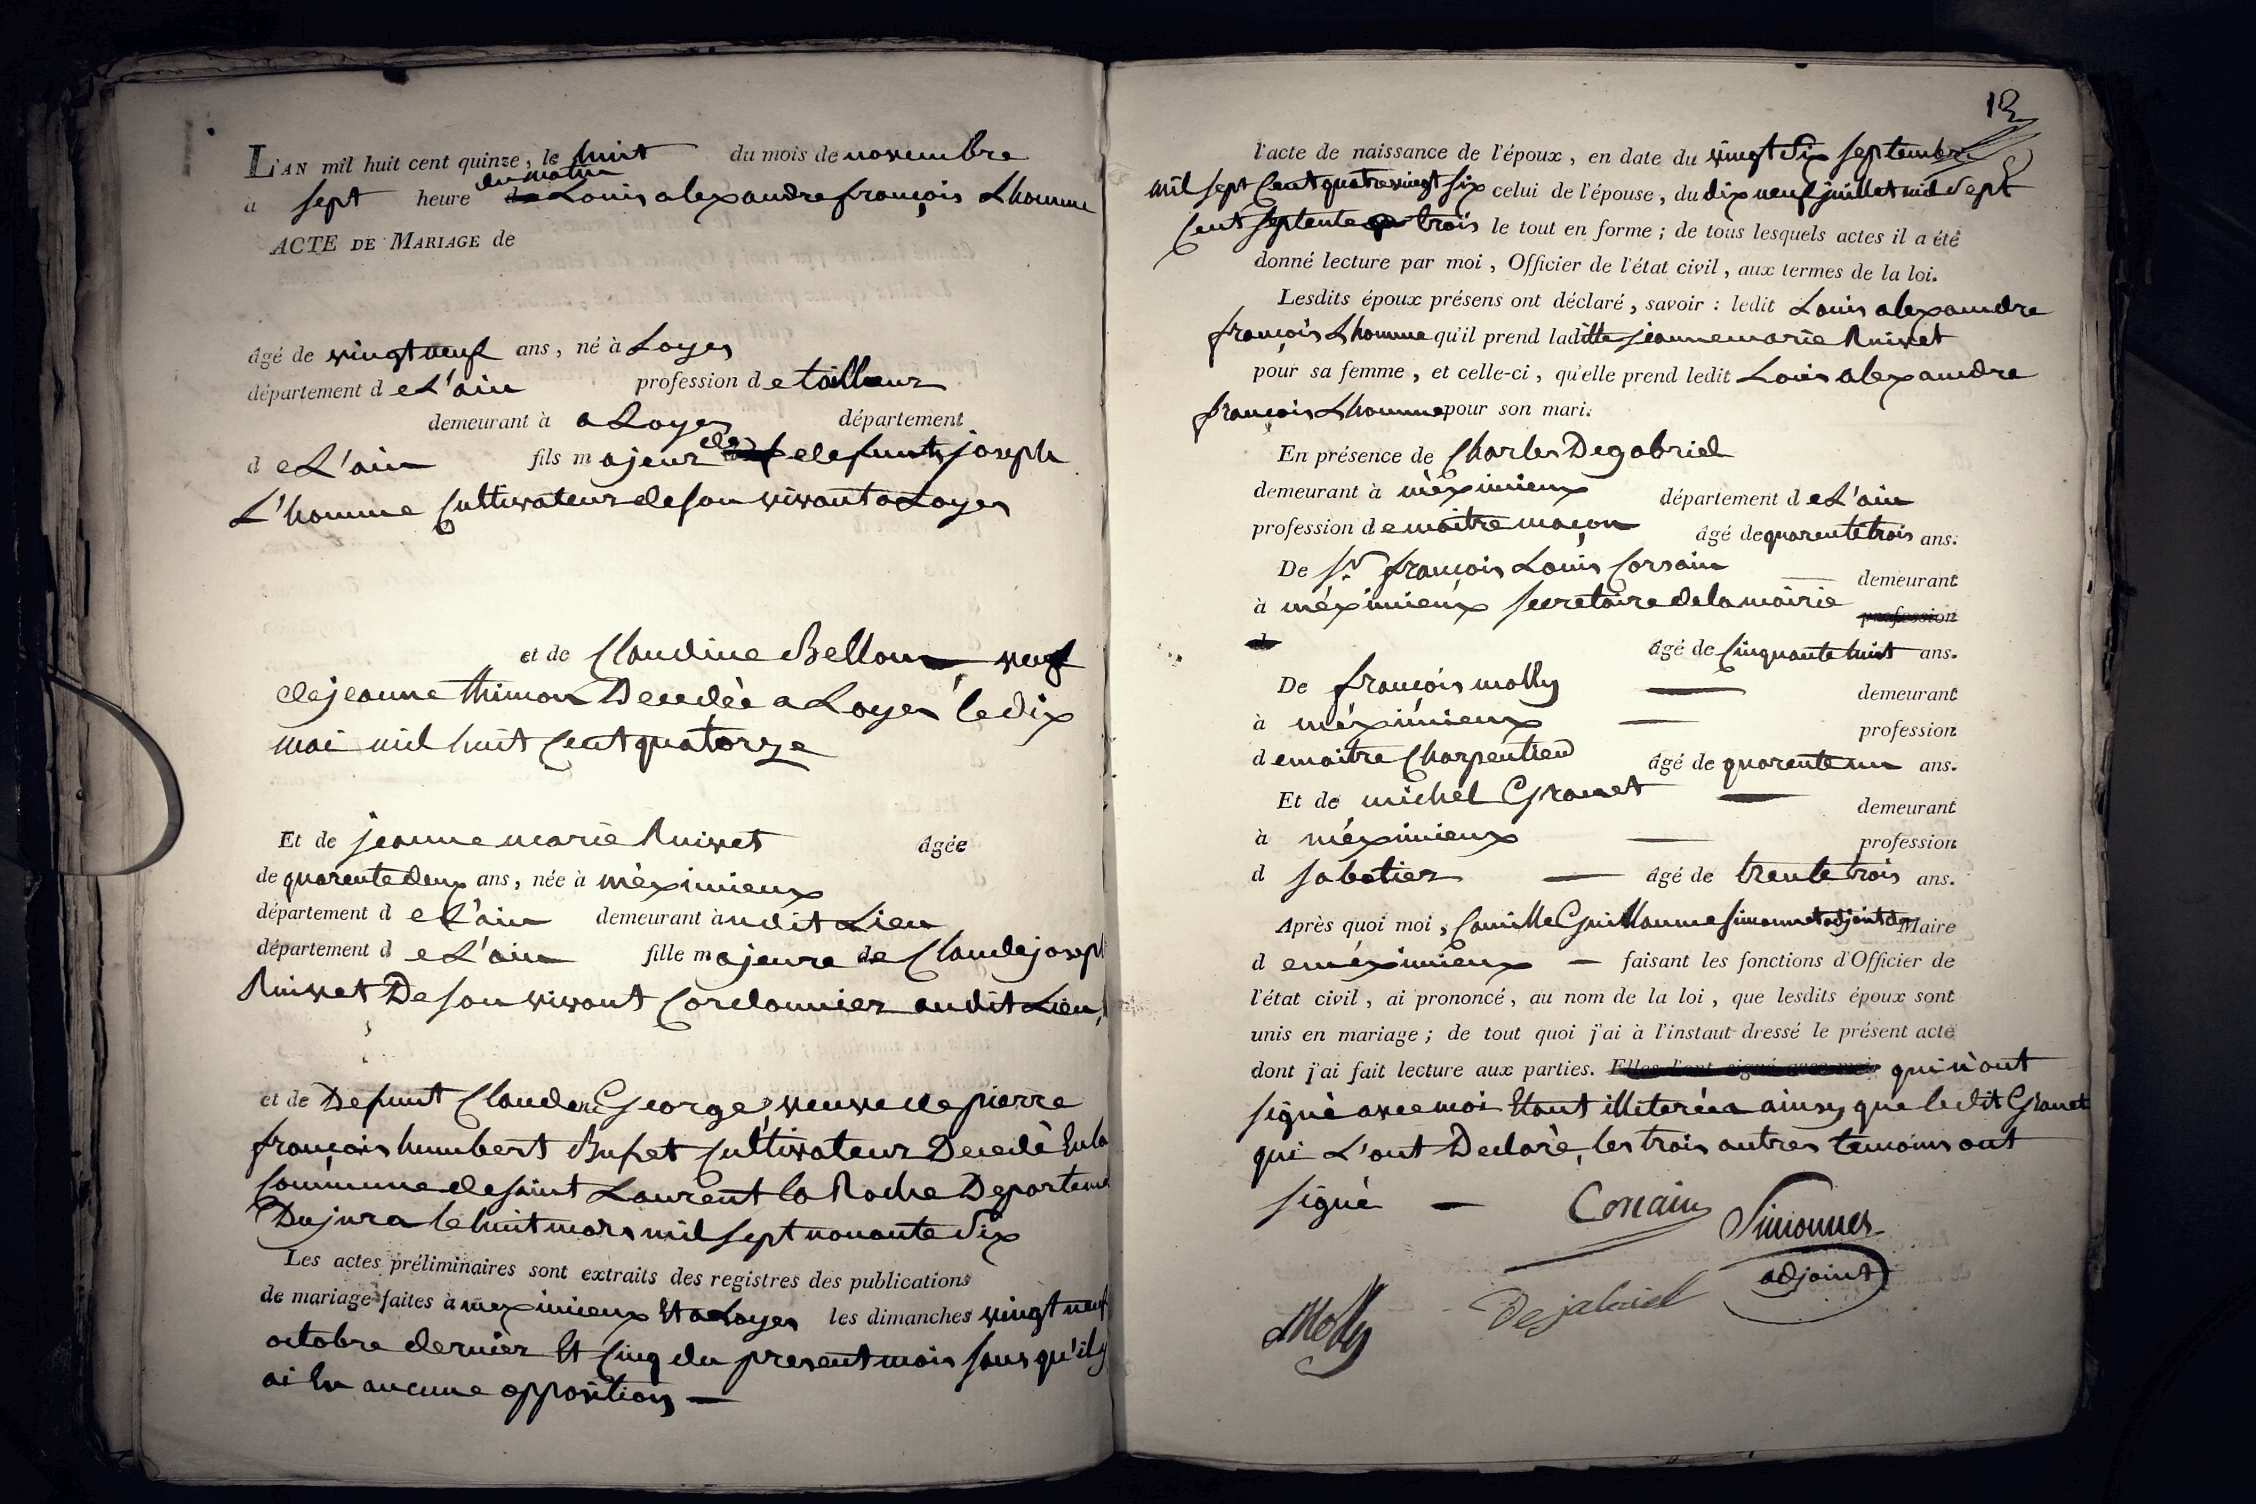 L'AN mil huit cent quinze, le huit du mois de novembre
du matin
à sept heure de Louis alexandre françois Lhomme
ACTE DE MARIAGE de
âgé de vingt neuf ans, né à Loyes
département d e L'ain profession d e tailleur
demeurant à a Loyes département
d e L'ain fils m ajeur de defunts joseph
L'homme Cultivateur de son vivant a Loyes
et de Claudine Bellon veuf
de jeanne thimon Decedèe a Loyes le dix
mai mil huit Cent quatorze
Et de jeanne marie Ruivet âgée
de quarente deux ans, née à mèximieux
département d e L'ain demeurant à udit Lieu
département d e L'ain fille m ajeure de Claude joseph
Ruivet De son vivant Cordonnier audit Lieu,
et de Defunt Claudine George, veuve de pierre
françois humbert Bufet Cultivateur Decedè En la
Commune de saint Laurent la Roche Departeme
Du jura le huit mars mil sept nonante Six
Les actes préliminaires sont extraits des registres des publications
de mariage faites à meximieux Et a Loyes les dimanches vingt neuf
octobre dernier Et Cinq du present mois sans qu'il y
ai Eu aucune opposition —
13
l'acte de naissance de l'époux, en date du vingt Six septembre
mil sept Cent quatre vingt six celui de l'épouse, du dix neuf juillet mil sept
Cent septente trois le tout en forme; de tous lesquels actes il a été
donné lecture par moi, Officier de l'état civil, aux termes de la loi.
Lesdits époux présens ont déclaré, savoir : ledit Louis alexandre
françois Lhomme qu'il prend laditte jeanne marie Ruivet
pour sa femme, et celle-ci, qu'elle prend ledit Louis alexandre
françois Lhomme pour son mari.
En présence de Charles Degabriel
demeurant à mèximieux département d e L'ain
profession d e maitre maçon âgé de quarente trois ans.
De Sr françois Louis Corsain demeurant
à méximieux secretaire de la mairie profession
d âgé de Cinquante huit ans.
De françois molly — demeurant
à méximieux — profession
d e maitre Charpentier âgé de quarente un ans.
Et de michel Granet — demeurant
à méximieux — profession
d sabotier — âgé de trente trois ans.
Après quoi moi, Camille Guillaume simonnet adjoint de Maire
d e méximieux — faisant les fonctions d'Officier de
l'état civil, ai prononcé, au nom de la loi, que lesdits époux sont
unis en mariage; de tout quoi j'ai à l'instaut dressé le présent acte
dont j'ai fait lecture aux parties. Elles l'ont signé avec moi qui n'ont
signè avec moi Etant illiterées ainsy que ledit Granet
qui L'ont Declarè, les trois autres temoins ont
signè —
Corsain
Simonnet
adjoint
Molly
Degabriel